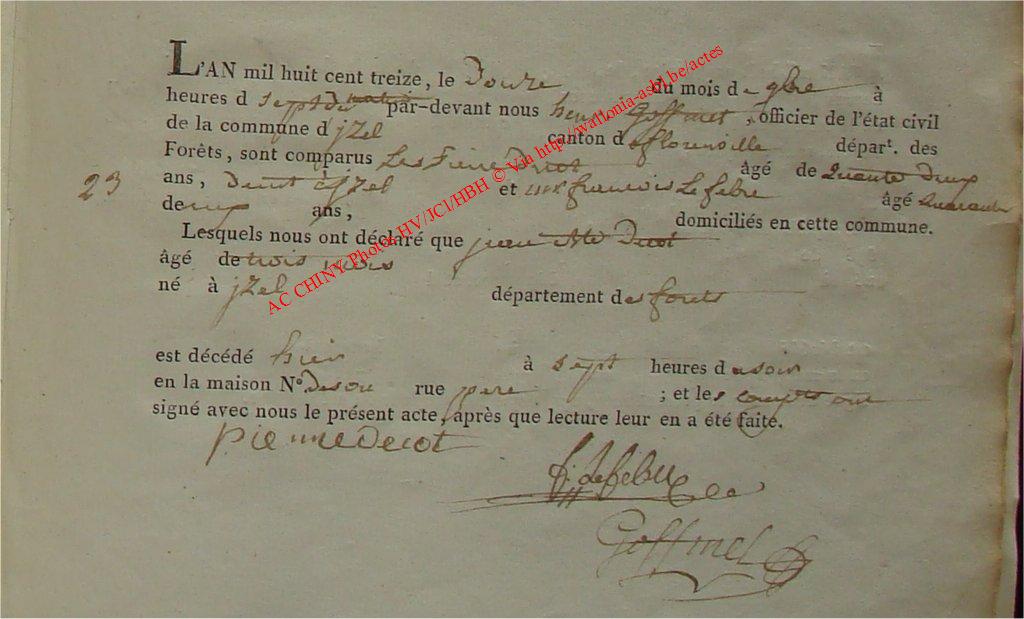 L'AN mil huit cent treize, le Douze du mois de 9bre à
heures d sept du matin par-devant nous henri Goffinet, officier de l'état civil
de la commune d jZel canton de florenville départ. des
Forêts, sont comparus Les Pierre Decot âgé de Quarente deux
23
ans, Demt à jZel et francois Lefebre âgé quarante
deux ans, domiciliés en cette commune.
Lesquels nous ont déclaré que jean Bte Decot
âgé de trois mois
né à jZel département des forets
est décédé hier à sept heures du soir
en la maison N° de son rue pere ; et les compts ont
signé avec nous le présent acte, après que lecture leur en a été faite.
pierre Decot
f. Lefebre
Goffinet
AC CHINY Photos HV/JCl/HBH © Via http://wallonia-asbl.be/actes